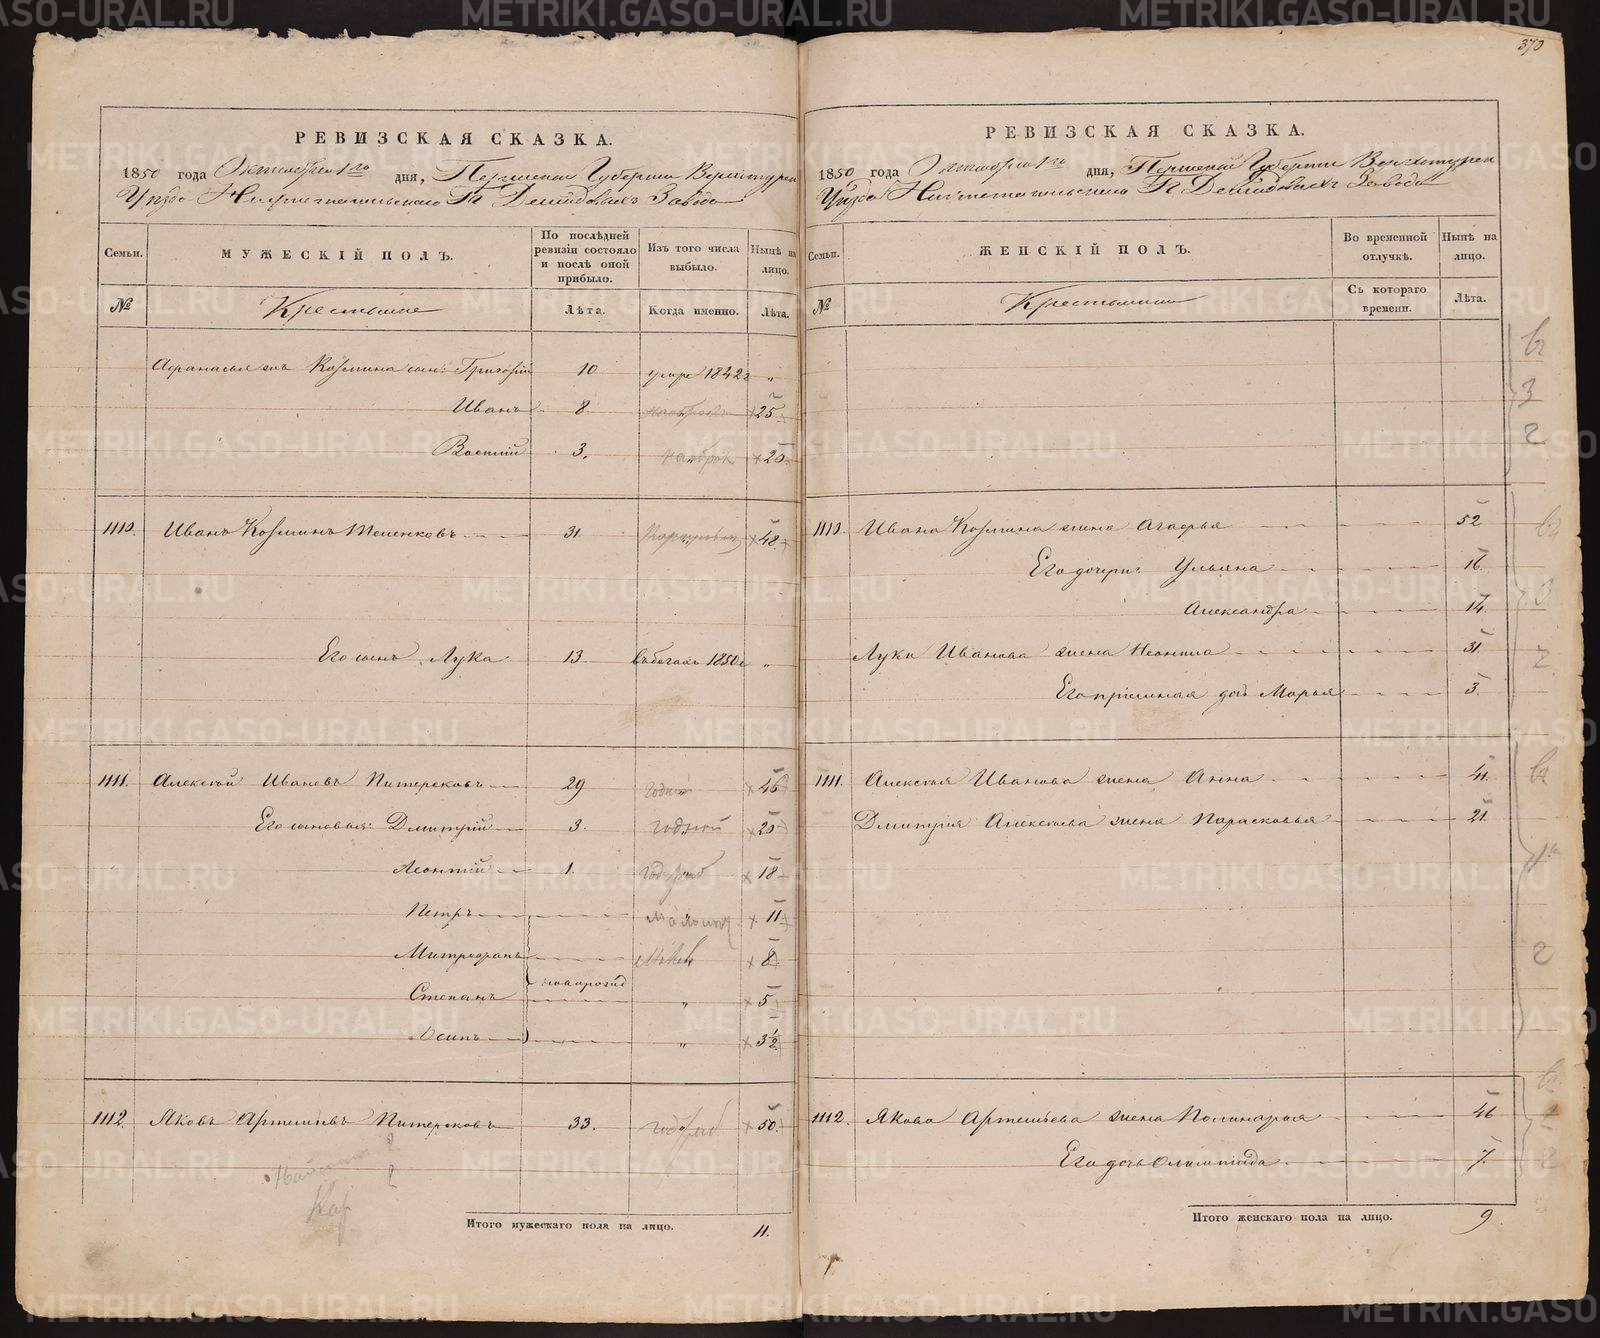 370
РЕВИЗСКАЯ СКАЗКА.
1850 года Октября 1го дня, Пермской Губернии Верхотурск
Уѣзда Нижнетагильскаго Гг Демидовыхъ Завода
Семьи.
МУЖЕСКІЙ ПОЛЪ.
По послѣдней ревизіи состояло и послѣ оной прибыло.
Изъ того числа выбыло.
Нынѣ на лицо.
№
Крестьяне
Лѣта.
Когда именно.
Лѣта.
Афанасья Козмина сын: Григорій 10 умре 1842 "
Иванъ 8 25
Василій 3. 20
1110. Иванъ Козминъ 31 48
Его сынъ Лука 13 въ бегахъ 1850 "
1111. Алексѣй Ивановъ Питерсковъ 29 годный 46
Его сыновья: Дмитрій 3. годной 20
Леонтій 1. 18
Петръ 11
Митрофанъ 8
Степанъ новорожд " 5
Осипъ " 3½
1112. Яковъ Артемьевъ Питерсковъ 33. 50.
Итого мужескаго пола на лицо. 11.
РЕВИЗСКАЯ СКАЗКА.
1850 года Октября 1го дня, Пермской Губерніи Верхотурск
Уѣзда Нижнетагильскаго Гг Демидовыхъ Завода
Семьи.
ЖЕНСКІЙ ПОЛЪ.
Во временной отлучкѣ.
Нынѣ на лицо.
№
Крестьянки
Съ котораго времени.
Лѣта.
1110. Ивана Козмина жена Агафья 52
Его дочери: Ульяна 16
Александра 14.
Луки Иванова жена Неонила 31
Его пріемная дочь Марья 3.
1111. Алексѣя Иванова жена Анна 41.
Дмитрія Алексѣева жена Парасковья 21.
1112. Якова Артемьева жена Полинарья 46
Его дочь Олимпіада 7.
Итого женскаго пола на лицо. 9
METRIKI.GASO-URAL.RU